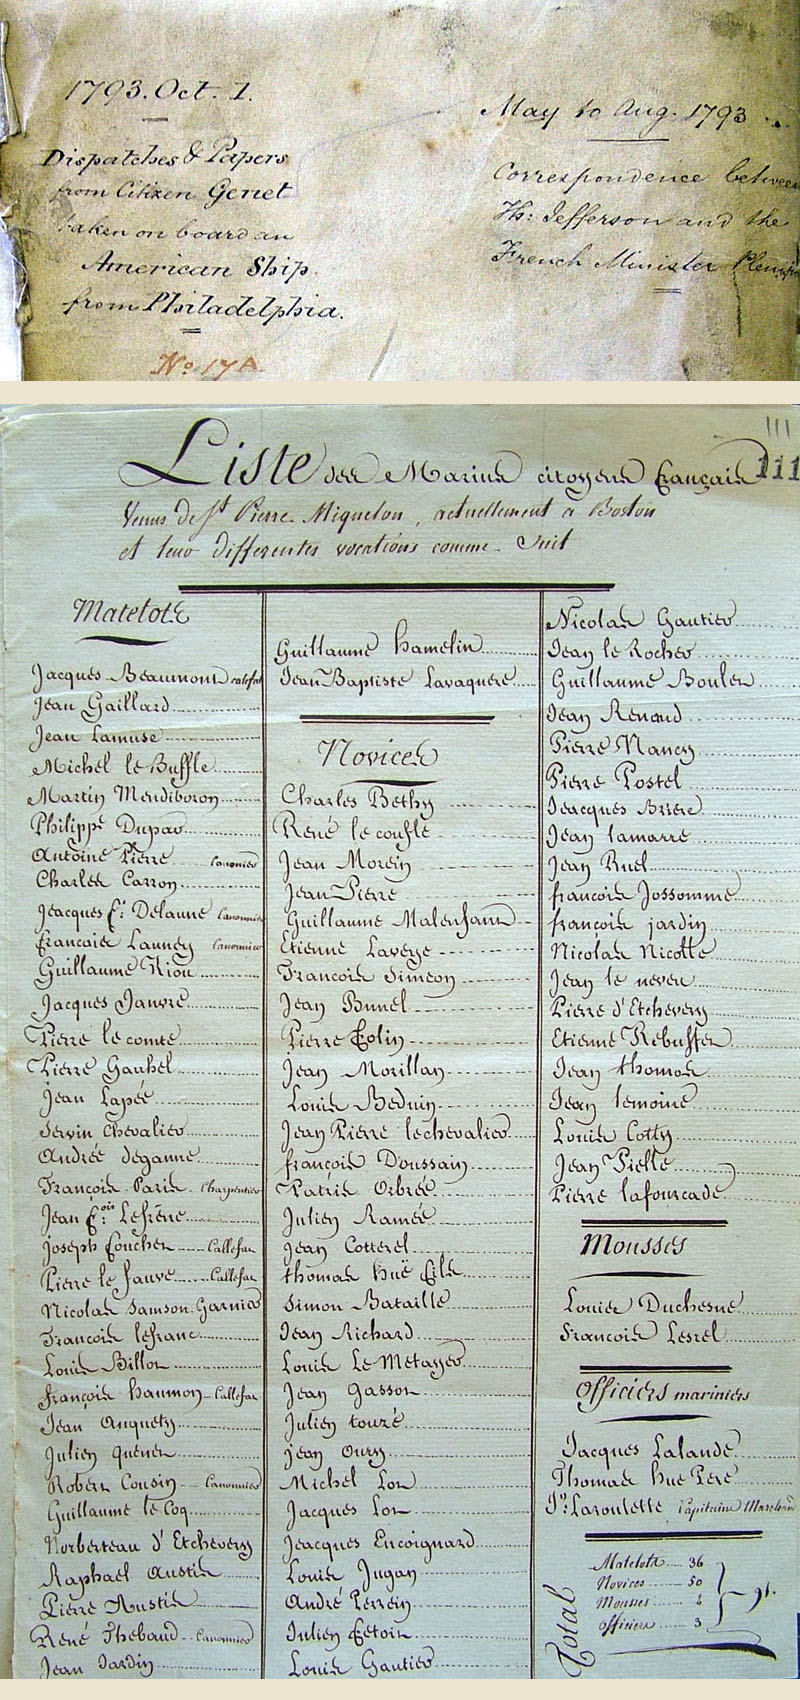 1793. Oct. 1.
Dispatches & Papers
from Citizen Genet
taken on board an
American Ship
from Philadelphia.
No. 17A
May to Aug. 1793
Correspondence between
Th: Jefferson and the
French Minister
111
111
Liste des Marins citoyens français
Venus de St Pierre Miquelon, actuellement a Boston
et leur differentes vocations comme Suit
Matelots
Jacques Beaumont calefat
Jean Gaillard
Jean Lamuse
Michel le Buffle
Martin Mendiboron
Philippe Dupar
Antoine Pierre canonier
Charles Carron
Jeacques f. Delaune canonnier
francois Launey canonnier
Guillaume Riou
Jacques Janvre
Pierre le comte
Pierre Gauhel
Jean Lapée
Servin Chevalier
Andrée deganne
François Paris Charpentier
Jean f.ois Lefrene
Joseph Coucher Callefat
Pierre le fauve Callefat
Nicolas Samson Garnier
Francois lefranc
Louis Billon
françois haumon Callefat
Jean Anquety
Julien quener
Robert Cousin Canonnier
Guillaume le Coq
Norberteau d'Etchevery
Raphael Austin
Pierre Austin
René Thebaud canonnier
Jean Jardin
Guillaume hamelin
Jean Baptiste Lavaquere
Novices
Charles Bethy
René le coufle
Jean Morein
Jean Pierre
Guillaume Malenfant
Etienne Laveye
Francois Simeon
Jean Bunel
Pierre folin
Jean Morillan
Louis Beduin
Jean Pierre lechevalier
françois Doussain
Patris Orbrée
Julien Ramée
Jean Cotterel
thomas huë fils
Simon Bataille
Jean Richard
Louis Le Metayer
Jean Gasson
Julien touzé
jean Oury
Michel Lor
Jacques Lor
Jeacques Encoignard
Louis Jugan
André Perrein
Julien Etoin
Louis Gautier
Nicolas Gautier
Jean le Rocher
Guillaume Boulen
Jean Renaud
Pierre Nancy
Pierre Postel
Jeacques Briere
Jean lamarre
Jean Ruel
francois Jossomme
francois jardin
Nicolas Nicolle
Jean le neveu
Pierre d'Etchevery
Etienne Rebuffer
Jean thomas
Jean lemoine
Louis Cotty
Jean Pielle
Pierre lafourcade
Mousses
Louis Duchesne
Francois Lesrel
Officiers mariniers
Jacques Lalande
Thomas hue Pere
Jn. Laroulette Capitaine Marchand
Total
Matelots 36
Novices 50
Mousses 2
Officiers 3
91.